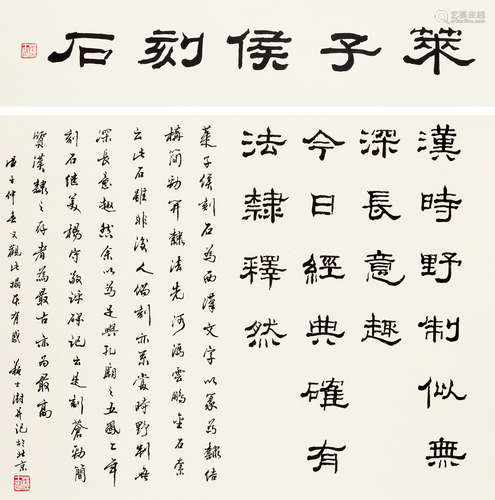 萊子侯刻石
漢時野制似無
深長意趣
今日經典確有
法隸釋然
萊子侯刻石為西漢文字以篆為隸結
構簡勁開隸法先河馮雲鵬金石索
云此石雖非後人偽刻亦系當時野制無
深長意趣然余以為是與孔廟之五鳳二年
刻石继美楊守敬評碑記出是刻蒼勁簡
質漢隸之存者為最古亦為最高
戊子仲春又觀此搨本有感 蘇士澍并記於北京